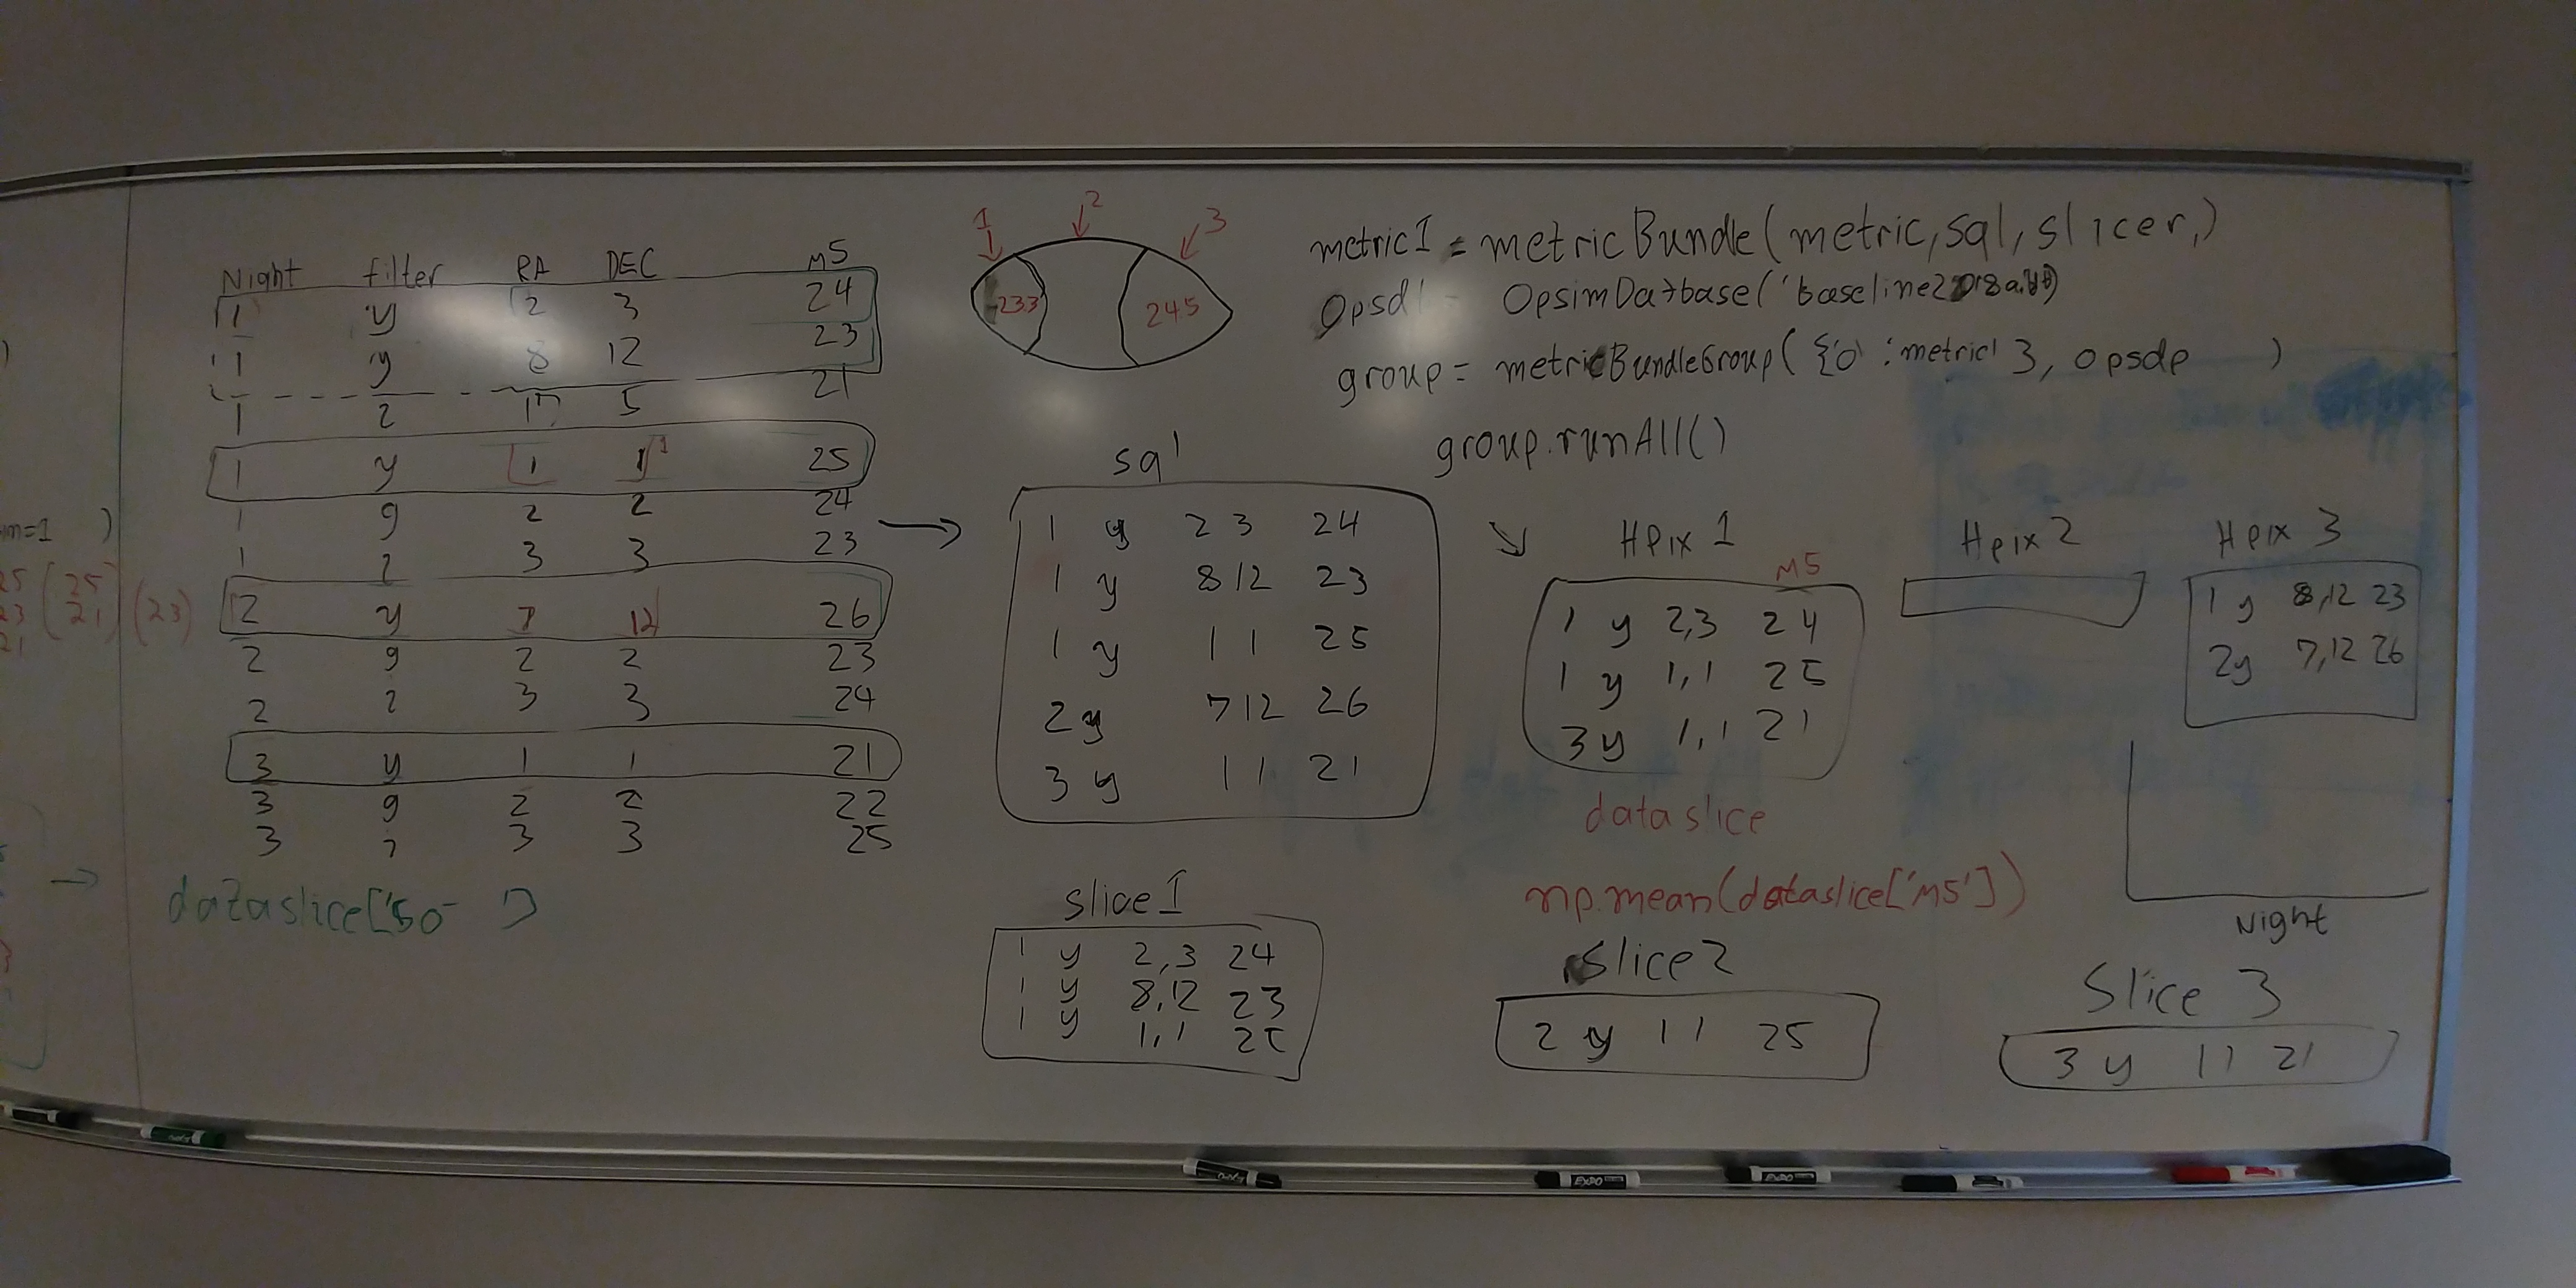 Night filter RA DEC M5
1 y 2 3 24
1 y 8 12 23
1 z 17 5 21
1 y 1 1 25
1 g 2 2 24
1 z 3 3 23
2 y 7 12 26
2 g 2 2 23
2 z 3 3 24
3 y 1 1 21
3 g 2 2 22
3 z 3 3 25
dataslice['50 ']
=1 )
25 (25)
23 (21) (23)
21
1 2 3
23.3 24.5
metric1 = metricBundle(metric, sql, slicer,)
Opsd = OpsimDatbase('baseline2018a.db')
group = metricBundleGroup({'0' : metric1}, opsdb )
group.runAll()
sql
1 y 2 3 24
1 y 8 12 23
1 y 1 1 25
2 y 7 12 26
3 y 1 1 21
Hpix 1
M5
1 y 2,3 24
1 y 1,1 25
3 y 1,1 21
dataslice
np.mean(dataslice['M5'])
Hpix 2
Hpix 3
1 y 8,12 23
2 y 7,12 26
Night
slice 1
1 y 2,3 24
1 y 8,12 23
1 y 1,1 25
Slice 2
2 y 1 1 25
Slice 3
3 y 1 1 21
EXPO
EXPO